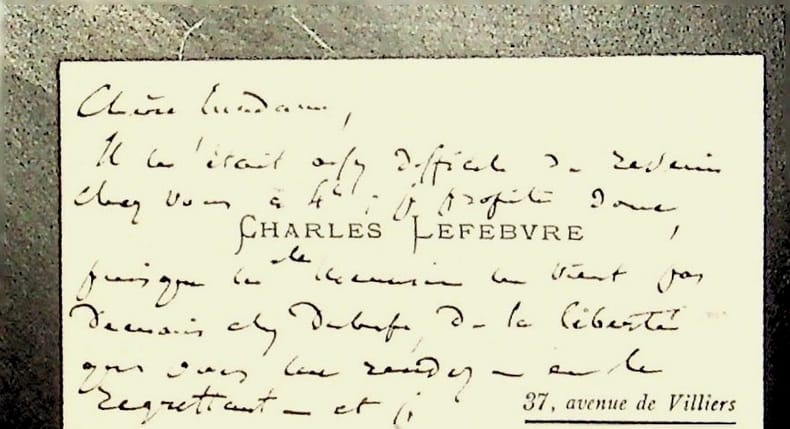 Chère Madame,
Il m'était assez difficile de revenir
chez vous à 4h ; je profite donc,
CHARLES LEFEBVRE
puisque ne vient pas
demain chez Dubufe, de la liberté
que vous me rendez – en le
regrettant – et je
37, avenue de Villiers